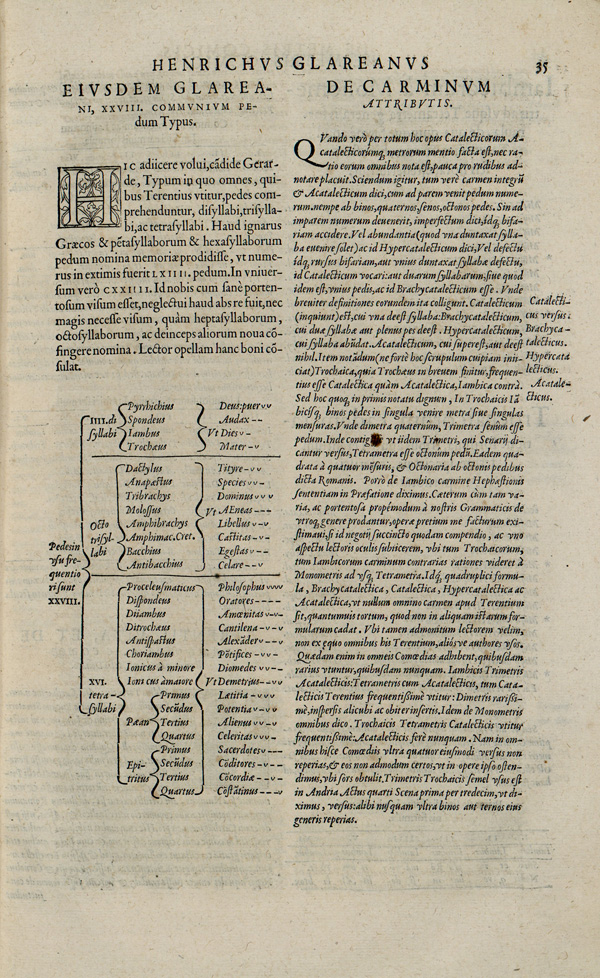 HENRICHVS GLAREANVS
35
EIVSDEM GLAREA-
NI, XXVIII. COMMVNIVM PE-
dum Typus.
HIC adiicere volui, cādide Gerar-
de, Typum in quo omnes, qui-
bus Terentius vtitur, pedes com-
prehenduntur, disyllabi, trisylla-
bi, ac tetrasyllabi. Haud ignarus
Græcos & pētasyllaborum & hexasyllaborum
pedum nomina memoriæ prodidisse, vt nume-
rus in extimis fuerit LXIIII. pedum. In vniuer-
sum verò CXXIIII. Id nobis cum sanè porten-
tosum visum esset, neglectui haud abs re fuit, nec
magis necesse visum, quàm heptasyllaborum,
octosyllaborum, ac deinceps aliorum noua cō-
fingere nomina. Lector opellam hanc boni cō-
sulat.
Pedes in
vsu fre-
quentio
ri sunt
XXVIII.
IIII. di
syllabi
Pyrrhichius
Spondeus
Iambus
Trochæus
Vt
Deus: puer ᴗᴗ
Audax --
Dies ᴗ-
Mater -ᴗ
Octo
trisyl-
labi
Dactylus
Anapæstus
Tribrachys
Molossus
Amphibrachys
Amphimac. Cret.
Bacchius
Antibacchius
Vt
Tityre -ᴗᴗ
Species ᴗᴗ-
Dominus ᴗᴗᴗ
AEneas ---
Libellus ᴗ-ᴗ
Castitas -ᴗ-
Egestas ᴗ--
Celare --ᴗ
XVI.
tetra-
syllabi
Proceleusmaticus
Dispondeus
Diiambus
Ditrochæus
Antispastus
Choriambus
Ionicus à minore
Ionicus à maiore
Pæan
Primus
Secūdus
Tertius
Quartus
Epi-
tritus
Primus
Secūdus
Tertius
Quartus
Vt
Philosophus ᴗᴗᴗᴗ
Oratores ----
Amœnitas ᴗ-ᴗ-
Cantilena -ᴗ-ᴗ
Alexāder ᴗ--ᴗ
Pōtifices -ᴗᴗ-
Diomedes ᴗᴗ--
Demetrius --ᴗᴗ
Lætitia -ᴗᴗᴗ
Potentia ᴗ-ᴗᴗ
Alienus ᴗᴗ-ᴗ
Celeritas ᴗᴗᴗ-
Sacerdotes ᴗ---
Cōditores -ᴗ--
Cōcordiæ --ᴗ-
Cōstātinus ---ᴗ
DE CARMINVM
ATTRIBVTIS.
QVando verò per totum hoc opus Catalecticorum A-
catalecticorumq́; metrorum mentio facta est, nec ra-
tio eorum omnibus nota est, pauca pro rudibus ad-
notare placuit. Sciendum igitur, tum verè carmen integrū
& Acatalecticum dici, cum ad parem venit pedum nume-
rum, nempe ab binos, quaternos, senos, octonos pedes. Sin ad
imparem numerum deuenerit, imperfectum dici, idq́; bifa-
riam accidere. Vel abundantia (quod vna duntaxat sylla-
ba euenire solet) ac id Hypercatalecticum dici, Vel defectu
idq́; rursus bifariam, aut vnius duntaxat syllabæ defectu,
id Catalecticum vocari: aut duarum syllabarum, siue quod
idem est, vnius pedis, ac id Brachycatalecticum esse. Vnde
breuiter definitiones eorundem ita colligunt. Catalecticum
(inquiunt) est, cui vna deest syllaba: Brachycatalecticum,
cui duæ syllabæ aut plenus pes deest. Hypercatalecticum,
cui syllaba abūdat. Acatalecticum, cui superest, aut deest
nihil. Item notādum (ne fortè hoc scrupulum cuipiam inii-
ciat) Trochaica, quia Trochæus in breuem finitur, frequen-
tius esse Catalectica quàm Acatalectica, Iambica contrà.
Sed hoc quoq; in primis notatu dignum, In Trochaicis Iā
bicisq́;, binos pedes in singula venire metra siue singulas
mensuras. Vnde dimetra quaternūm, Trimetra senūm esse
pedum. Inde contig vt iidem Trimetri, qui Senarij di-
cantur versus, Tetrametra esse octonūm pedū. Eadem qua-
drata à quatuor mēsuris, & Octonaria ab octonis pedibus
dicta Romanis. Porrò de Iambico carmine Hephæstionis
sententiam in Præfatione diximus. Cæterum cùm tam va-
ria, ac portentosa propémodum à nostris Grammaticis de
vtroq; genere prodantur, operæ pretium me facturum exi-
stimaui, si id negotij succincto quodam compendio, ac vno
aspectu lectoris oculis subiicerem, vbi tum Trochæorum,
tum Iambicorum carminum contrarias rationes videret à
Monometris ad vsq; Tetrametra. Idq́; quadruplici formu-
la, Brachycatalectica, Catalectica, Hypercatalectica ac
Acatalectica, vt nullum omnino carmen apud Terentium
sit, quantumuis tortum, quod non in aliquam istarum for-
mularum cadat. Vbi tamen admonitum lectorem velim,
non ex æquo omnibus his Terentium, aliósve authores vsos.
Quædam enim in omneis Comœdias adhibent, quibusdam
rarius vtuntur, quibusdam nunquam. Iambicis Trimetris
Acatalecticis: Tetrametris cum Acatalecticis, tum Cata-
lecticis Terentius frequentissimè vtitur: Dimetris rarissi-
mè, inspersis alicubi ac obiter insertis. Idem de Monometris
omnibus dico. Trochaicis Tetrametris Catalecticis vtitur
frequentissimè: Acatalecticis ferè nunquam. Nam in om-
nibus hisce Comœdiis vltra quatuor eiusmodi versus non
reperias, & eos non admodum certos, vt in opere ipso osten-
dimus, vbi sors obtulit. Trimetris Trochaicis semel vsus est
in Andria Actus quarti Scena prima per tredecim, vt di-
ximus, versus: alibi nusquam vltra binos aut ternos eius
generis reperias.
Catalecti-
cus versus.
Brachyca-
talecticus.
Hypercata
lecticus.
Acatale-
cticus.